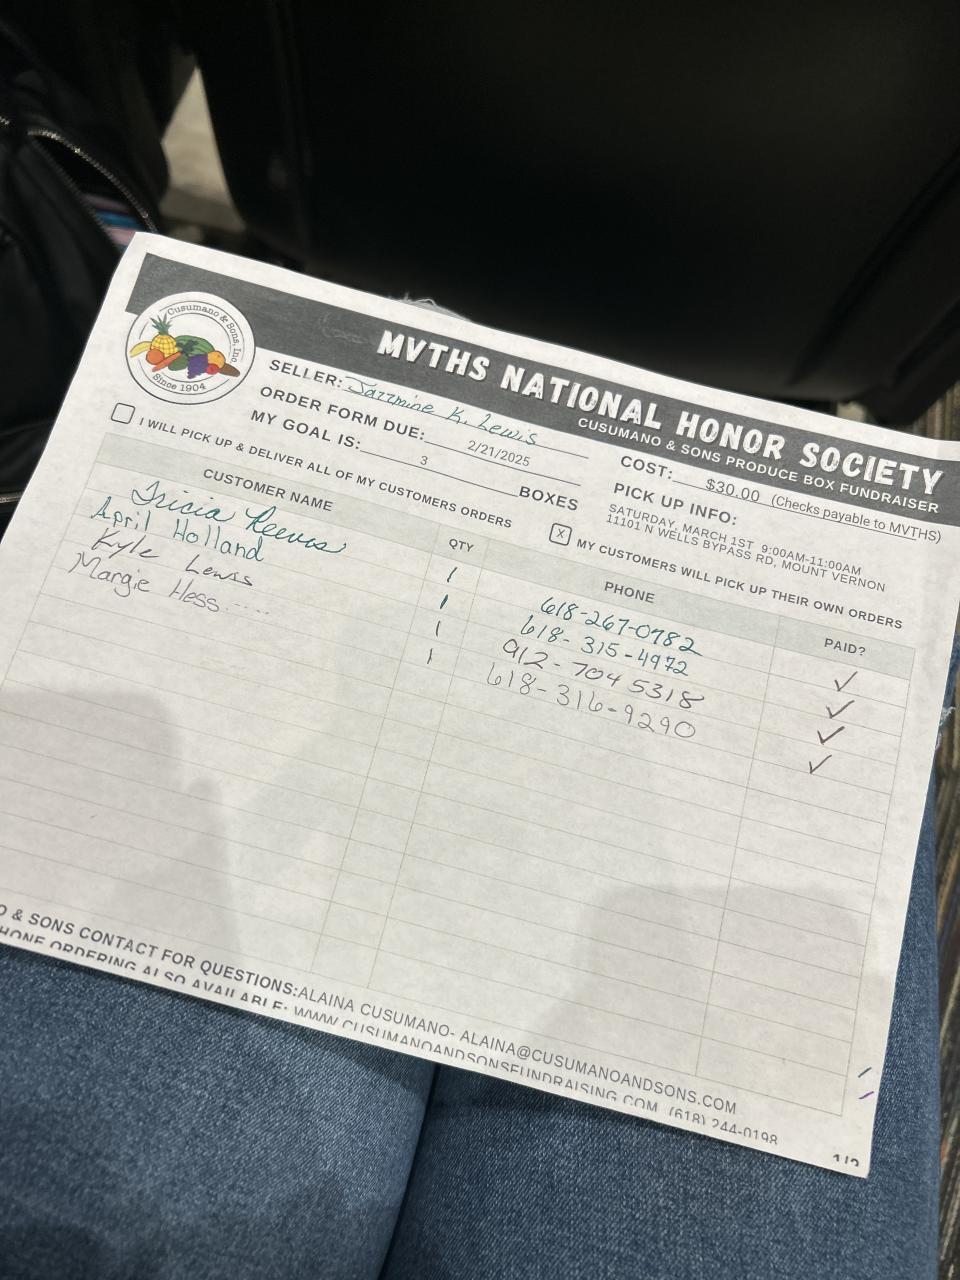 Cusumano & Sons, Inc.
Since 1904
MVTHS NATIONAL HONOR SOCIETY
CUSUMANO & SONS PRODUCE BOX FUNDRAISER
SELLER: Jazzmine K. Lewis
ORDER FORM DUE: 2/21/2025
MY GOAL IS: 3 BOXES
COST: $30.00 (Checks payable to MVTHS)
PICK UP INFO:
SATURDAY, MARCH 1ST 9:00AM-11:00AM
11101 N WELLS BYPASS RD, MOUNT VERNON
I WILL PICK UP & DELIVER ALL OF MY CUSTOMERS ORDERS
X MY CUSTOMERS WILL PICK UP THEIR OWN ORDERS
CUSTOMER NAME QTY PHONE PAID?
Tricia Reeves 1 618-267-0782 ✓
April Holland 1 618-315-4972 ✓
Kyle Lewis 1 912-704 5318 ✓
Margie Hess..... 1 618-316-9290 ✓
O & SONS CONTACT FOR QUESTIONS:ALAINA CUSUMANO- ALAINA@CUSUMANOANDSONS.COM
HONE ORDERING ALSO AVAILABLE: WWW.CUSUMANOANDSONSFUNDRAISING.COM (618) 244-0198